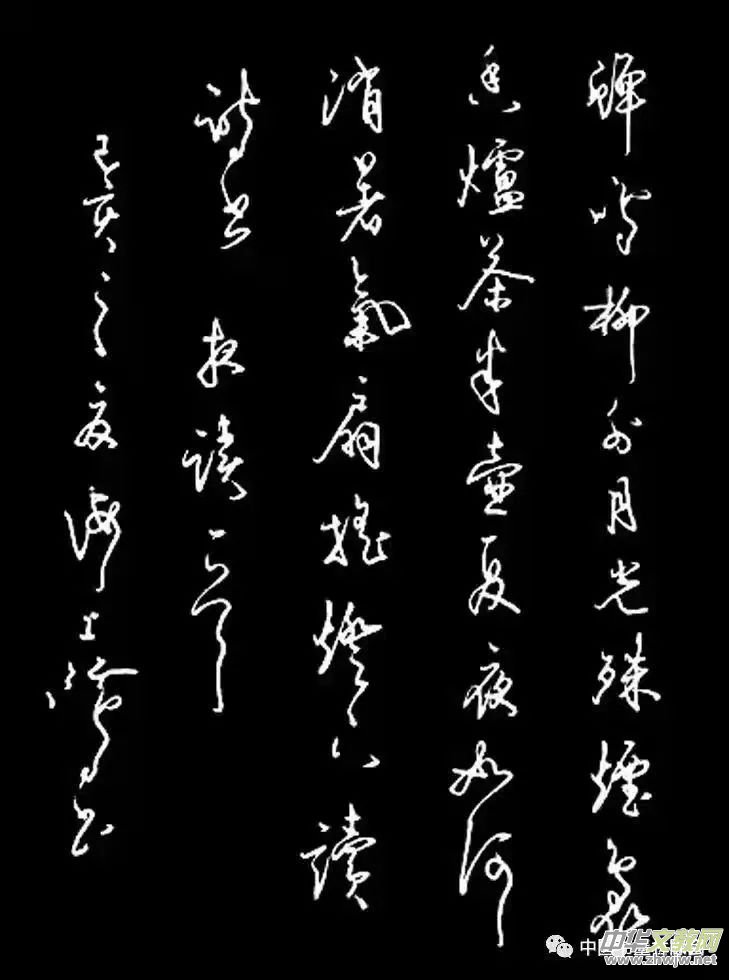 蟬鳴柳外月光殊煙裊
香爐茶半壺夏夜如何
消暑氣扇搖燈下讀
詩書 夜讀
己亥之夏海上書
中国
中华文教网
www.zhwjw.net